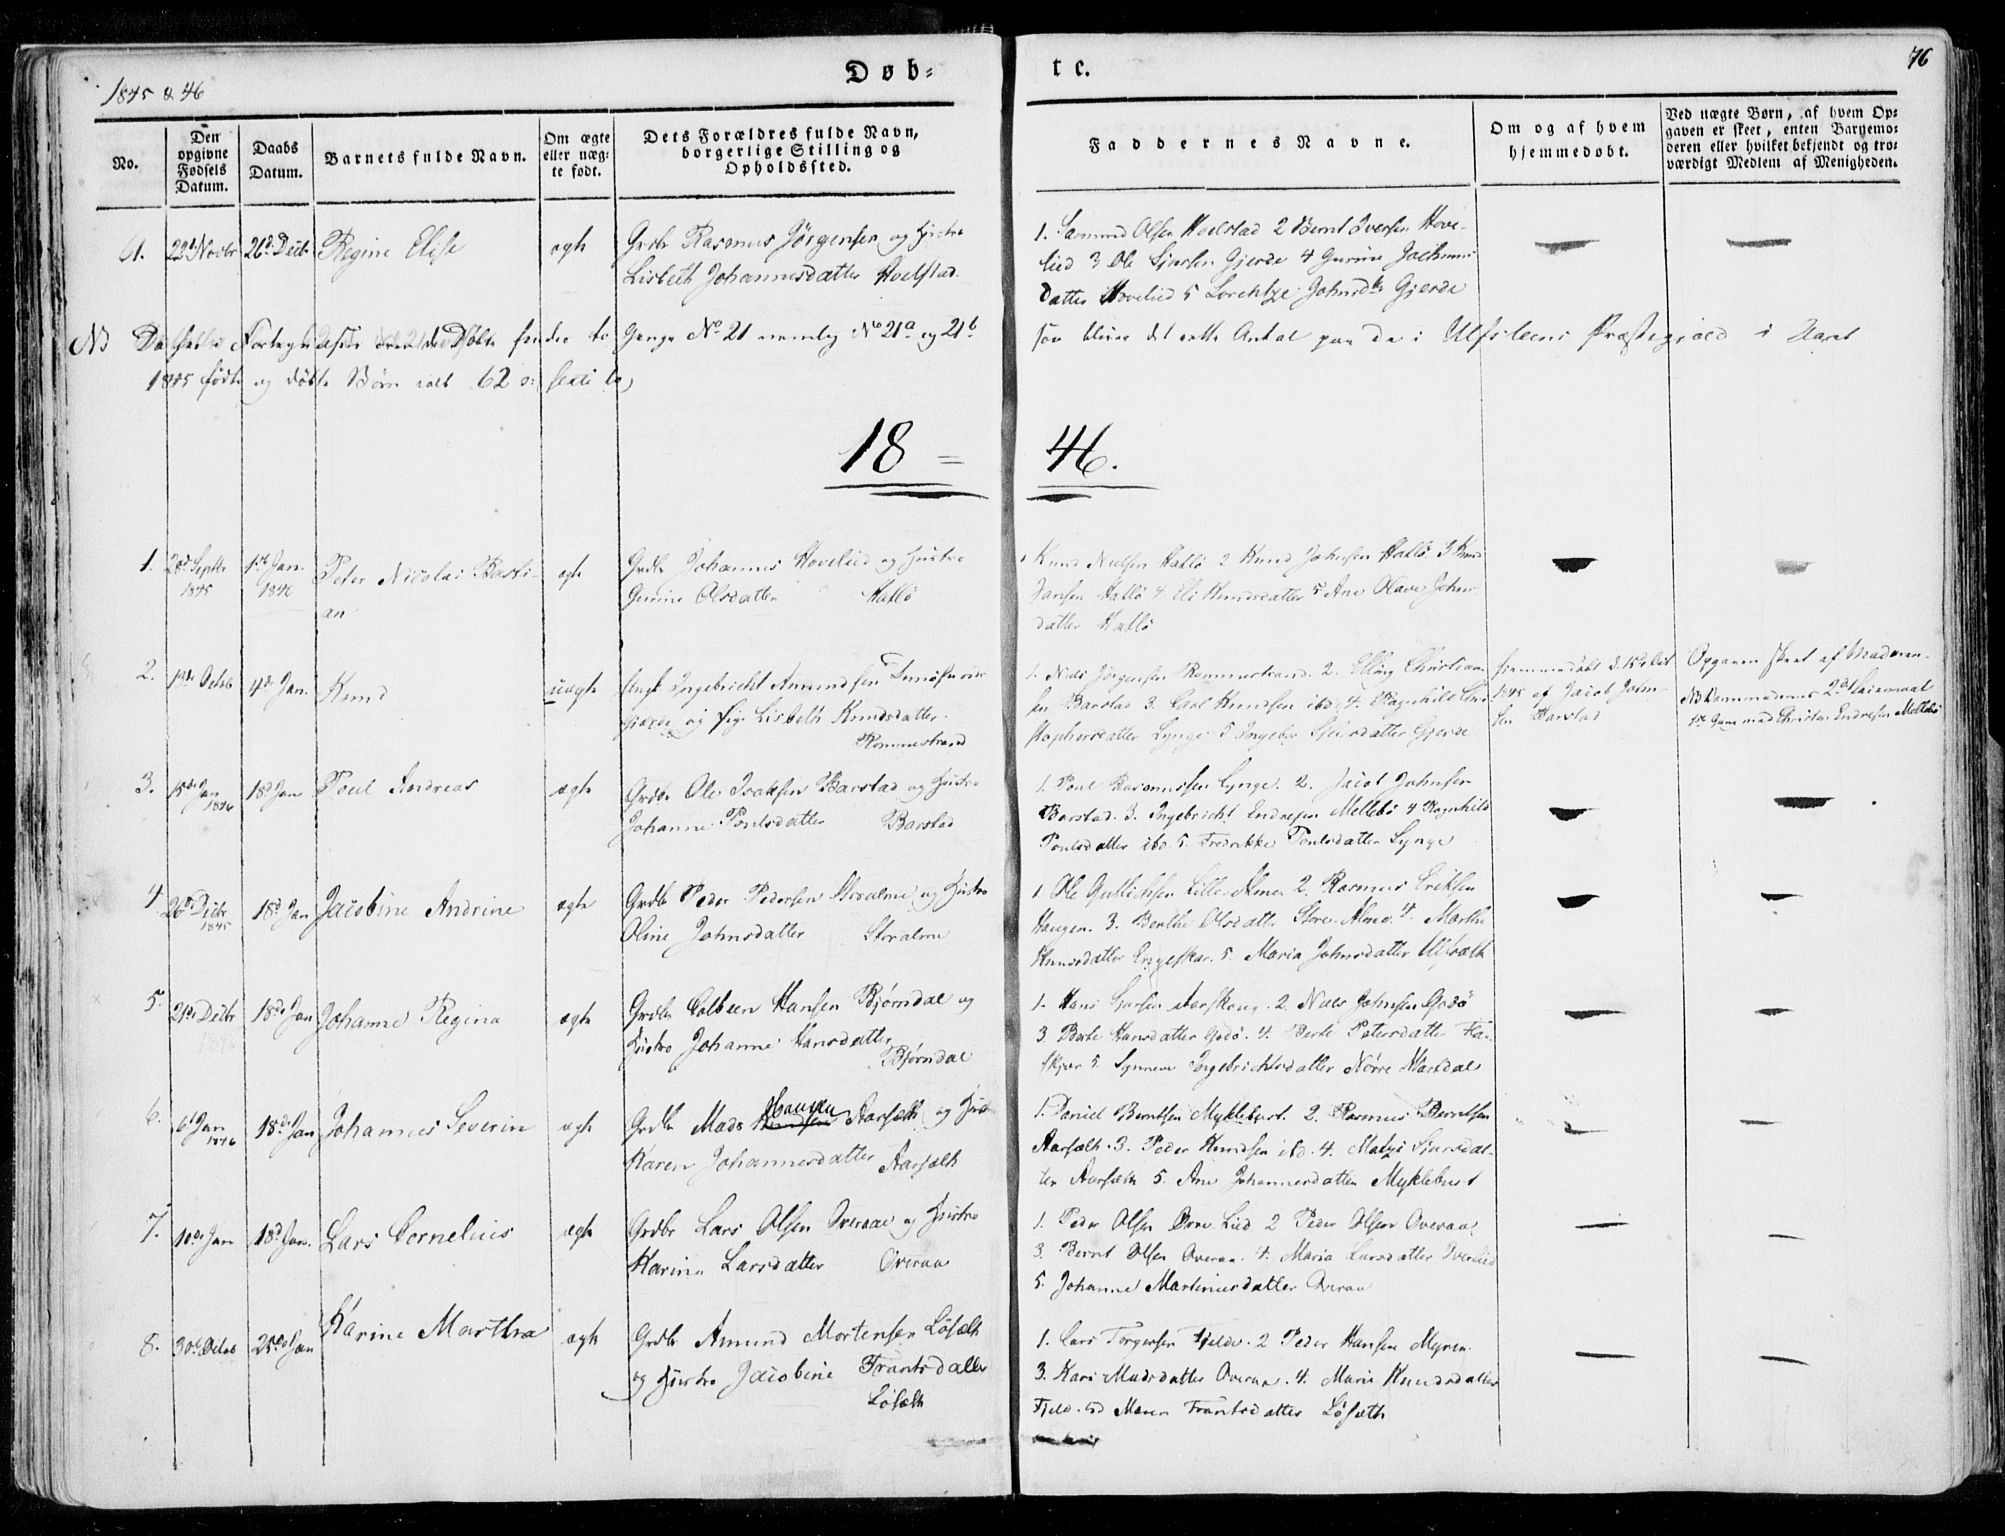 1845 & 46
Døb-
te.
76
No.
Den opgivne Fødsels Datum.
Daabs Datum.
Barnets fulde Navn.
Om ægte eller uægte født.
Dets Forældres fulde Navn, borgerlige Stilling og Opholdssted.
Faddernes Navne.
Om og af hvem hjemmedøbt.
Ved uægte Børn, af hvem Opgaven er skeet, enten Barnemoderen eller hvilket bekjendt og troværdigt Medlem af Menigheden.
61. 22d Novbr 26d Decbr Regine Elise ægte Grdbr Rasmus Jørgensen og Hustro
Lisbeth Johannesdatter Hoelstad
1. Samund Olsen Hoelstad 2 Bernt Iversen Hove-
lied 3 Ole Sjursen Gjerde 4 Gurine Jochums
datter Hovelied 5 Lorentze Johnsdtr Gjerde
NB Da Fortegnelsen over de Døbte findes to Gange No 21 nemlig No 21a og 21b
saa bliver det rette Antal paa de i Ulfsteens Præstegjæld i Aaret
1845 fødte og døbte Børn 62 o: sexti to,
18 =
46.
1. 28d Septbr 1845 1ste Jan. 1846 Peter Nicolai Basti-
an
ægte Grdbr Johannes Hovelied og Hustro
Gurine Olsdatter Hatlø
1 Knud Nielsen Hatlø 2 Knud Johnsen Hatlø 3 Knud
Jansen Hatlø 4 Eli Knudsdatter 5 Ane Olave Johns-
datter Hatlø
2. 13de Octob 4de Jan. Knud uægte Ungk Ingebricht Amundsen
Gjerde og Pige Lisbeth Knudsdatter
Rommestrand
1. Niels Jørgensen Rommestrand. 2. Elling Christian-
sen Barstad 3. Carl Knudsen ibd 4. Ragnhild Chri-
stophersdatter Lynge 5 Ingebor Sjursdatter Gjerde
hjemmedøbt d. 15de Oct
1845 af Jacob John-
sen Barstad
Opgaven skeet af Moderen.
NB Qvinmodernes 2det Leiermaal
1ste Gang med Christen Endresen Mellebø
3. 15de Jan 1846 18d Jan Poul Andreas ægte Grdbr Ole Isaksen Barstad og Hustro
Johanne Poulsdatter Barstad
1. Poul Rasmussen Lynge. 2. Jacob Johnsen
Barstad. 3. Ingebricht Endresen Mellebø 4 Ragnhild
Poulsdatter ibd 5. Fredrikke Poulsdatter Lynge
4 26de Decbr 1845 18d Jan Jacobine Andrine ægte Grdbr Peder Pedersen Storalme og Hustro
Oline Johnsdatter Storalme
1. Ole Gullichsen Lille Alme 2. Rasmus Eriksen
Haugen. 3. Berthe Olsdatter Store-Alme. 4. Marthe
Knudsdatter Engeskar. 5. Maria Johnsdatter Ulfsæth
5. 21de Decbr 18de Jan Johanne Regina ægte Grdbr Colbeen Hansen Bjørndal og
Hustro Johanne Hansdatter
Bjørndal
1. Hans Sjursen Aarskoug. 2 Niels Johnsen Godø
3. Berte Hansdatter Godø. 4. Berte Petersdatter Fla-
skjær 5. Synneve Ingebrichtsdatter Nørre Hardal
6. 6d Jan 1846 18de Jan Johannes Severin ægte Grdbr Mads Hansen Aarsæth og Hust
Karen Johannesdatter Aarsæth
1. Daniel Berntsen Myklebust. 2. Rasmus Berntsen
Aarsæth. 3. Peder Knudsen ibd. 4. Malye Sjursdat-
ter Aarsæth 5. Ane Johannesdatter Myklebust
7. 10de Jan 18d Jan. Lars Cornelius ægte Grdbr Lars Olsen Overaae og Hustro
Karina Larsdatter Overaa
1. Peder Olsen Øvre Lied 2 Peder Olsen Overaa
3. Bernt Olsen Overaa. 4. Maria Larsdatter Overlied
5. Johanne Martinusdatter Overaa
8. 30d Octob 25de Jan Karine Martha ægte Grdbr Amund Mortensen Løsæth
og Hustro Jacobine Frantsdatter
Løsæth
1. Lars Torgersen Fjelde. 2 Peder Hansen Myren.
3. Kari Madsdatter Overaa. 4. Marie Knudsdatter
Fjeld. 5d Maren Frantsdatter Løsæth